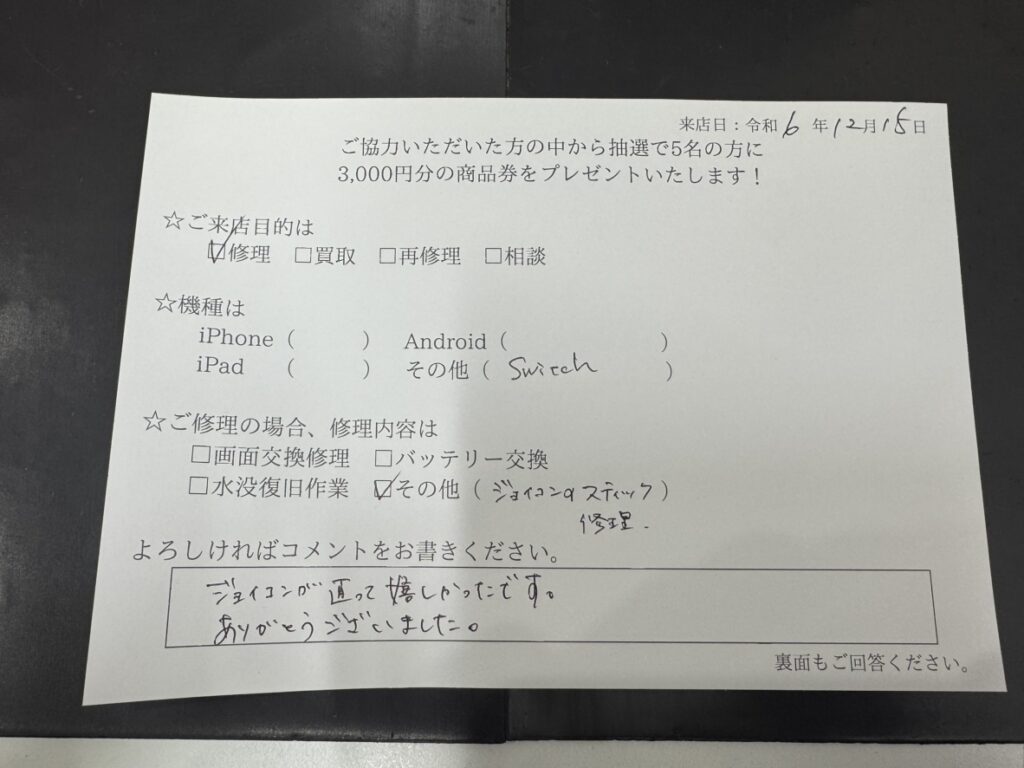 来店日：令和 6 年 12月 15日
ご協力いただいた方の中から抽選で5名の方に
3,000円分の商品券をプレゼントいたします！
☆ご来店目的は
☑修理 □買取 □再修理 □相談
☆機種は
iPhone（ ） Android（ ）
iPad （ ） その他（ Switch ）
☆ご修理の場合、修理内容は
□画面交換修理 □バッテリー交換
□水没復旧作業 ☑その他（ジョイコンのスティック）
修理.
よろしければコメントをお書きください。
ジョイコンが直って嬉しかったです。
ありがとうございました。
裏面もご回答ください。